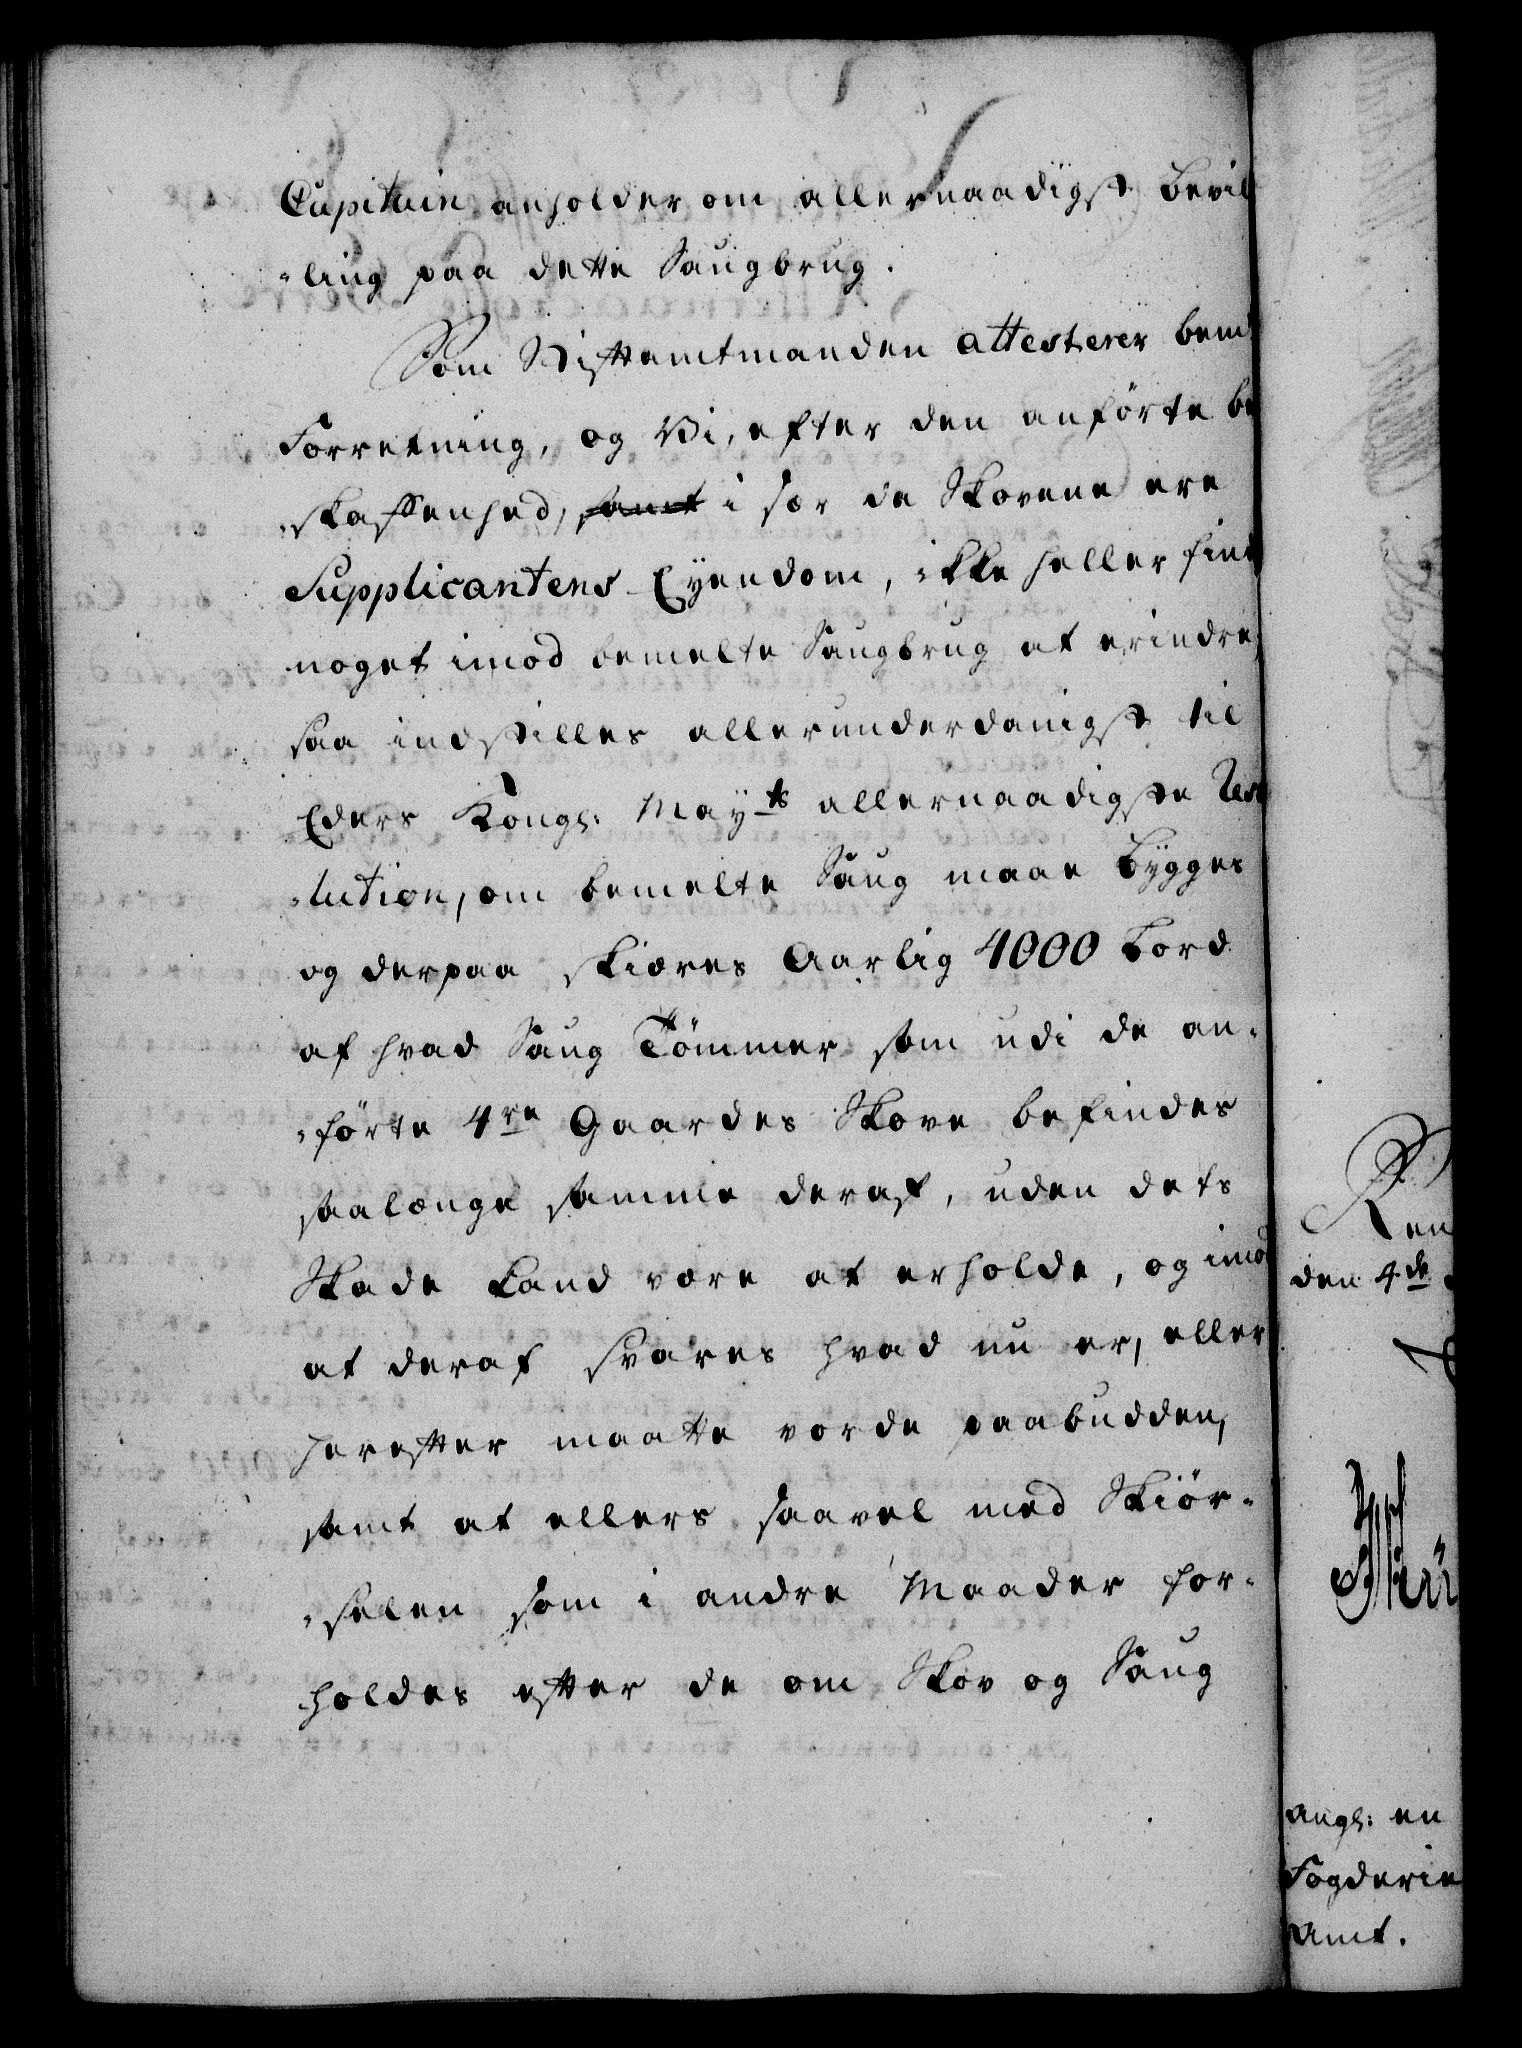 Capitain anholder om allernaadigst Bevil
-ling paa dette Saugbrug.
Som Stiftamtmanden attesterer bemt
Forretning, og Vi, efter den anførte be
-skaffenhed, samt i sær da Skovene ere
Supplicantens Eyendom, ikke heller find
noget imod bemelte Saugbrug at erindre,
saa indstilles allerunderdanigst til
Eders Kongl: Mayts allernaadigste Reso
-lution, om bemelte Saug maae Bygges
og derpaa skiæres Aarlig 4000 Bord
af hvad Saug Tømmer som udi de an-
-førte 4re Gaardes Skove befindes
saalænge samme deraf, uden dets
Skade kand være at erholde, og imod
at deraf svares hvad nu er, eller
herefter maatte vorde paabudden,
samt at ellers saavel med Skiør-
-selen som i andre Maader for-
holdes efter de om Skov og Saug
Ren
den 4de
angl: en
Fogderie
Amt.